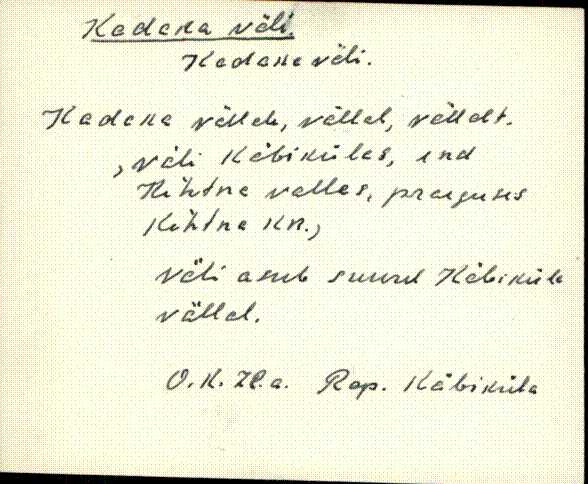 Kadaka väli.
Kadaka väli.
Kadaka vällale, vällal, vällalt.
, väli Käbikülas, end
Kehtna vallas, praeguses
Kehtna KN.,
Väli asub suurel Käbiküla
vällal.
O.K. Rap. Käbiküla